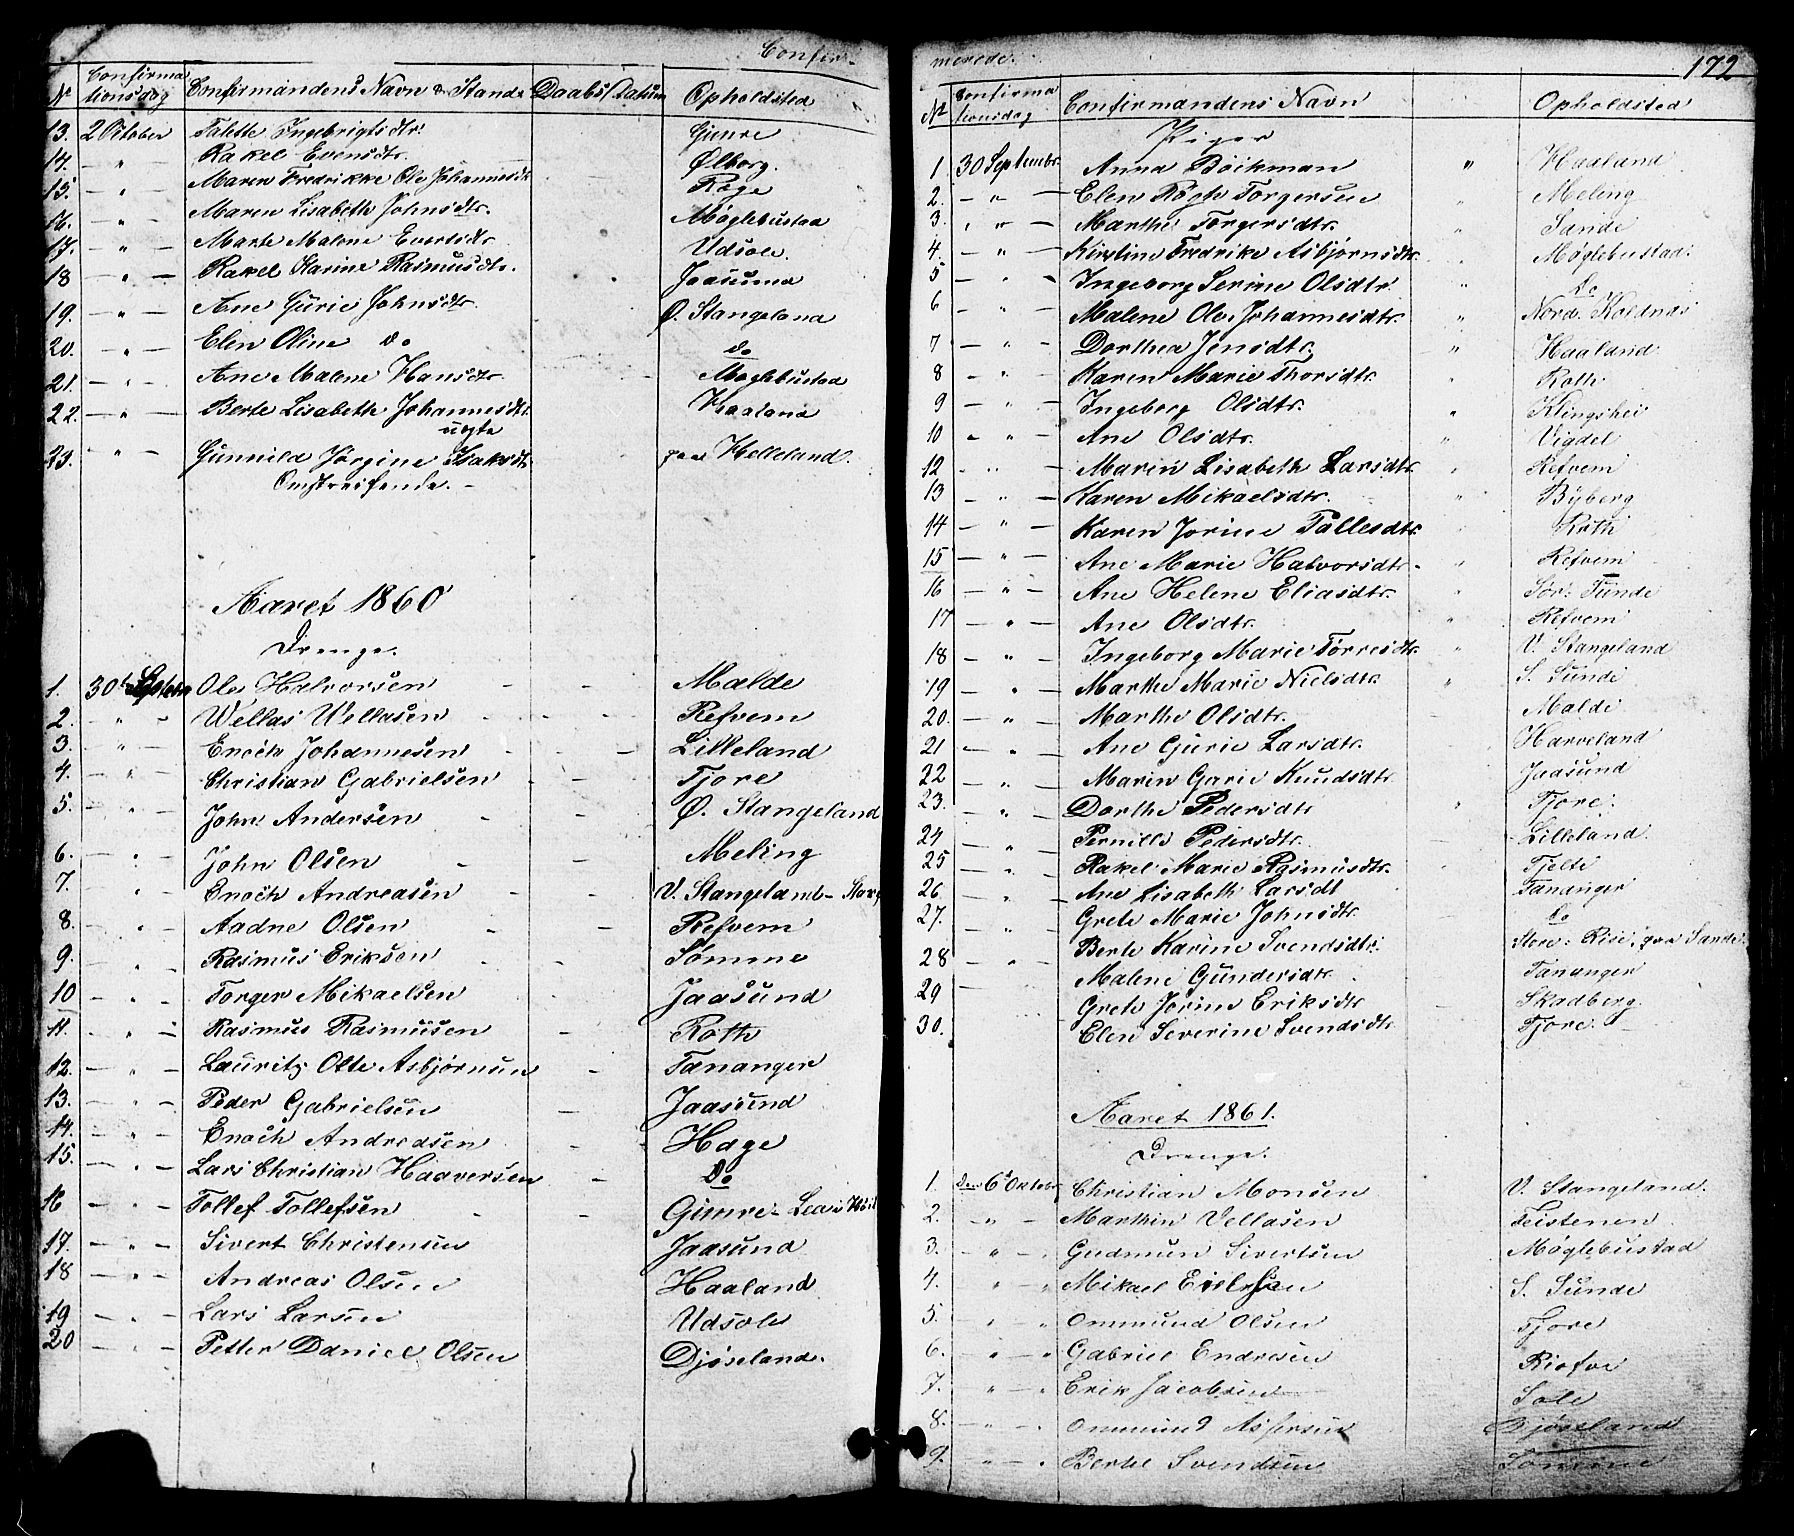 Confir-
Nr Confirmationsdag Confirmandens Navn & Stand Daabs Datum Opholdsted
13. 2 October Talette Ingebrigtsdtr. Gimre
14. — " — Rakel Evensdtr. Ølborg.
15. — " — Maren Fredrikke Ols Johannesdtr Røge
16. — " — Maren Lisabeth Johnsdtr. Møglebustad
17. — " — Marte Malene Evertsdtr Udsole.
18 — " — Rakel Karine Rasmusdtr. Jaasund
19. — " — Ane Gurie Johnsdtr. Ø. Stangeland
20. — " — Elen Oline do do
21. — " — Ane Malene Hansdtr. Møglebustad
22. — " — Berte Lisabeth Johannesdtr. Haaland
uegte
23. — " — Gunnild Jørgine Isaksdtr. paa Helleland.
Omstreifende. —
Aaret 1860
Drenge.
1. 30t Ole Halvorsen Malde
2. — " — Wellas Wellasen Refvem
3. — " — Enoch Johannesen Lilleland
4. — " — Christian Gabrielsen Tjore
5. — " — John Andersen Ø. Stangeland
6. — " — John Olsen Meling
7. — " — Enoch Andreasen V. Stangeland
8. — " — Aadne Olsen Refvem
9. — " — Rasmus Eriksen Sømme
10 — " — Torger Mikaelsen Jaasund
11. — " — Rasmus Rasmusen Roth
12. — " — Lauritz Otte Asbjørnsen Tananger
13. — " — Peder Gabrielsen Jaasund
14. — " — Enoch Andreasen Hage
15. — " — Lars Christian Haaversen Do
16 — " — Tollef Tollefsen Gimre
17. — " — Sivert Christensen Jaasund
18 — " — Andreas Olsen Haaland
19 — " — Lars Larsen Udsole
20 — " — Petter Daniel Olsen Djøseland.
merede. 172
Nr Confirmationsdag Confirmandens Navn Opholdsted
Piger
1 30 Septembr. Anna Böckman " Haaland
2. — " — Elen Røgh Torgersen Meling
3. — " — Marthe Torgersdtr. Sande
4. — " — Kirstine Fredrike Asbjørnsdtr. Møglebustad.
5 — " — Ingeborg Serine Olsdtr do
6 — " — Malene Ols Johannesdtr. Nord. Koldnæs
7 — " — Dorthea Jensdtr. Haaland.
8 — " — Karen Marie Thorsdtr. Roth
9 — " — Ingeborg Olsdtr. Klingshei
10 — " — Ane Olsdtr. Vigdel
12 — " — Maren Lisabeth Larsdtr. Refvem
13 — " — Karen Mikaelsdtr. Byberg
14 — " — Karen Jorine Tallesdtr Roth
15 — " — Ane Marie Halvorsdtr. Refvem
16 — " — Ane Helene Eliasdtr. Sør: Sunde
17 — " — Ane Olsdtr. Refvem
18 — " — Ingeborg Marie Torresdtr V. Stangeland
19 — " — Marthe Marie Nielsdtr. S. Sunde
20. — " — Marthe Olsdtr. Malde
21 — " — Ane Gurie Larsdtr. Harveland
22 — " — Maren Garie Knudsdtr Jaasund
23. — " — Dorthe Pedersdtr Tjore.
24 — " — Pernille Pedersdtr. Lilleland.
25 — " — Rakel Marie Rasmusdtr. Tjelte
26. — " — Ane Lisabeth Larsdt Tananger
27. — " — Grete Marie Johnsdtr. do
28 — " — Berte Karine Svendsdtr. Store: Risi, paa Sande.
29 — Malene Gundersdtr. Tananger
Grete Jorine Eriksdtr Skadberg.
30. Elen Severine Svendsdtr Tjore.
Aaret 1861.
Drenge.
1. Den 6t Oktobr. Christian Monsen V. Stangeland.
2. — " — Marthin Vellasen Feistenen
3. — " — Gudmun Sivertsen Møglebustad
4. " — " Mikael S. Sunde
5. " " Ommund Olsen Tjore
6. " — " Gabriel Endresen Riofve
7. " — " Erik Jacobsen Sole
8. — " — Ommund Djøseland
9. " — " Bertel Svendsen Sømme